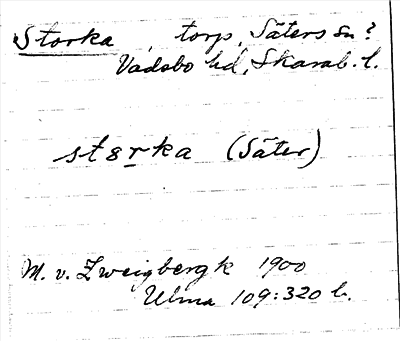 Storka, torp, Säters sn?
Vadsbo hd, Skarab. l.
storka (Säter)
M. v. Zweigbergk 1900
Ulma 109:320 b.